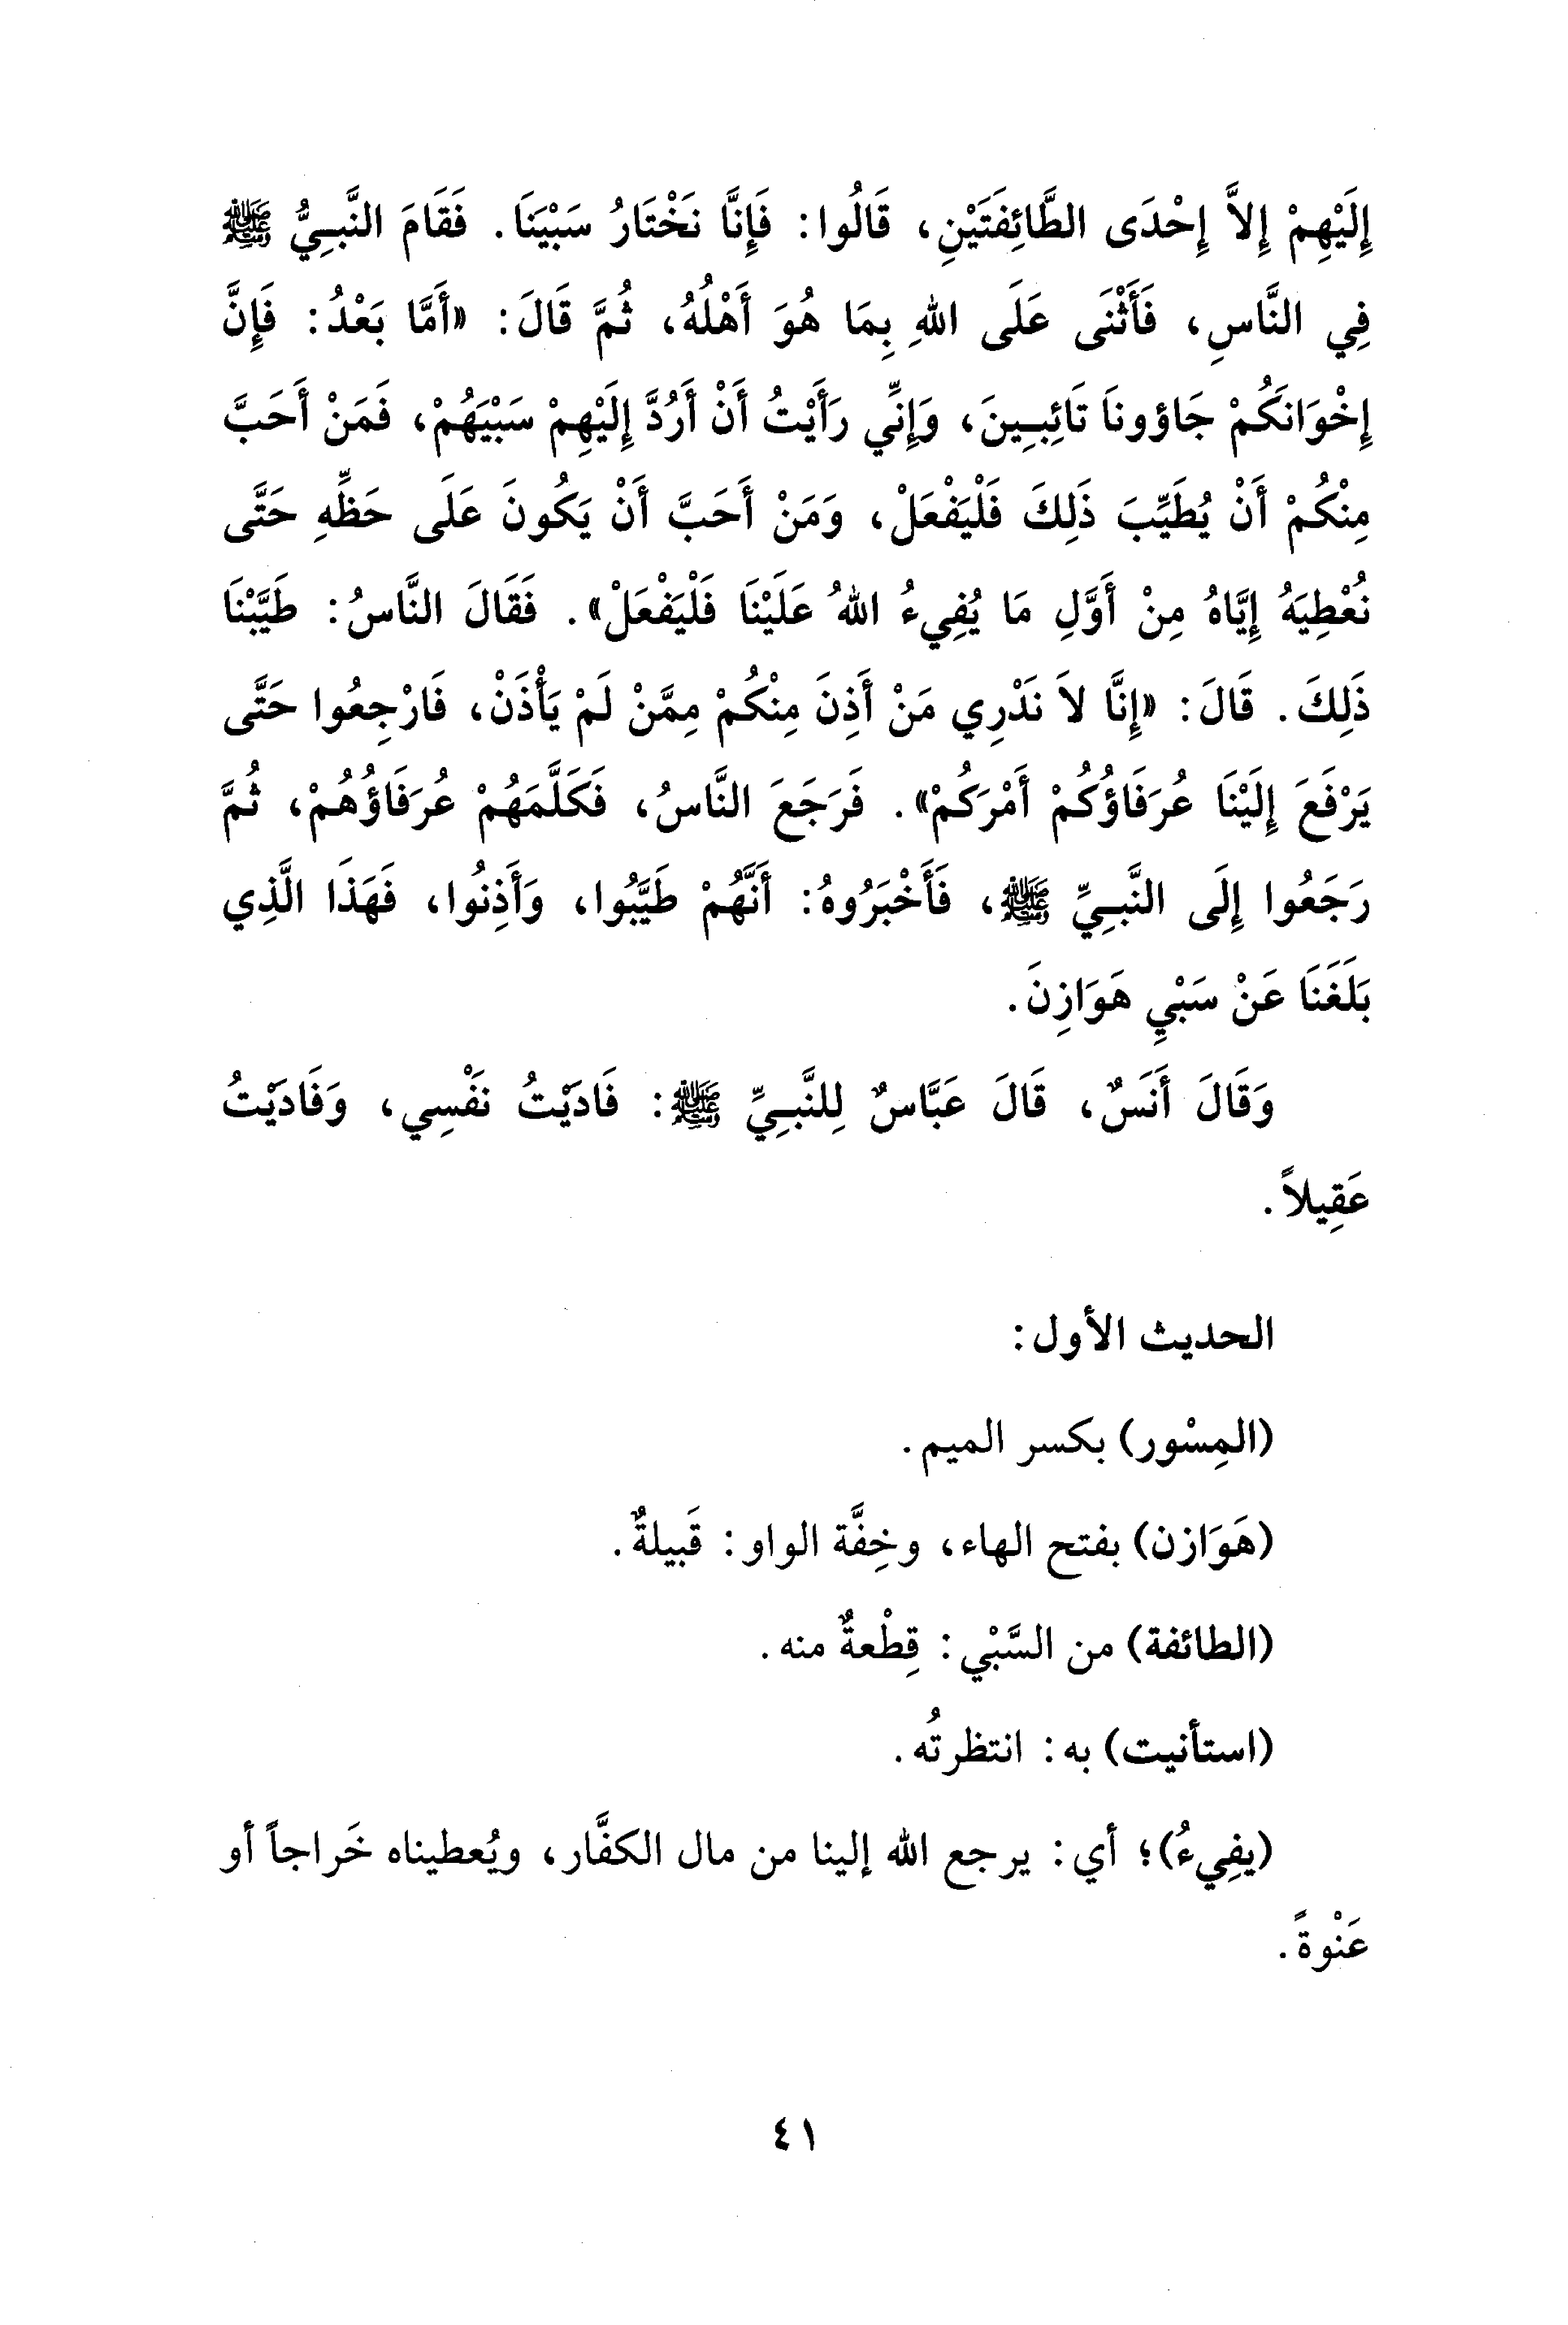 إِلَيْهِمْ إِلاَّ إِحْدَى الطَّائِفَتَيْنِ، قَالُوا: فَإِنَّا نَخْتَارُ سَبْيَنَا. فَقَامَ النَّبِيُّ ﷺ
فِي النَّاسِ، فَأَثْنَى عَلَى اللهِ بِمَا هُوَ أَهْلُهُ، ثُمَّ قَالَ: «أَمَّا بَعْدُ: فَإِنَّ
إِخْوَانَكُمْ جَاؤونَا تَائِبِينَ، وَإِنِّي رَأَيْتُ أَنْ أَرُدَّ إِلَيْهِمْ سَبْيَهُمْ، فَمَنْ أَحَبَّ
مِنْكُمْ أَنْ يُطَيِّبَ ذَلِكَ فَلْيَفْعَلْ، وَمَنْ أَحَبَّ أَنْ يَكُونَ عَلَى حَظِّهِ حَتَّى
نُعْطِيَهُ إِيَّاهُ مِنْ أَوَّلِ مَا يُفِيءُ اللهُ عَلَيْنَا فَلْيَفْعَلْ». فَقَالَ النَّاسُ: طَيَّبْنَا
ذَلِكَ. قَالَ: «إِنَّا لاَ نَدْرِي مَنْ أَذِنَ مِنْكُمْ مِمَّنْ لَمْ يَأْذَنْ، فَارْجِعُوا حَتَّى
يَرْفَعَ إِلَيْنَا عُرَفَاؤُكُمْ أَمْرَكُمْ». فَرَجَعَ النَّاسُ، فَكَلَّمَهُمْ عُرَفَاؤُهُمْ، ثُمَّ
رَجَعُوا إِلَى النَّبِيِّ ﷺ، فَأَخْبَرُوهُ: أَنَّهُمْ طَيَّبُوا، وَأَذِنُوا، فَهَذَا الَّذِي
بَلَغَنَا عَنْ سَبْيِ هَوَازِنَ.
وَقَالَ أَنَسٌ، قَالَ عَبَّاسٌ لِلنَّبِيِّ ﷺ: فَادَيْتُ نَفْسِي، وَفَادَيْتُ
عَقِيلاً.
الحديث الأول:
(المِسْور) بكسر الميم.
(هَوَازن) بفتح الهاء، وخِفَّة الواو: قَبيلةٌ.
(الطائفة) من السَّبْي: قِطْعةٌ منه.
(استأنيت) به: انتظرتُه.
(يفِيءُ)؛ أي: يرجع الله إلينا من مال الكفَّار، ويُعطيناه خَراجاً أو
عَنْوةً.
٤١